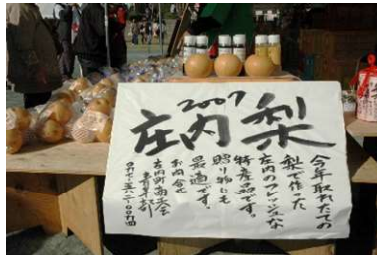 2007
庄内梨
今年取れたての
梨で作った
庄内のフレッシュな
特産品です。
贈り物にも
最適です。
お問合せ
庄内町商工会
青年部